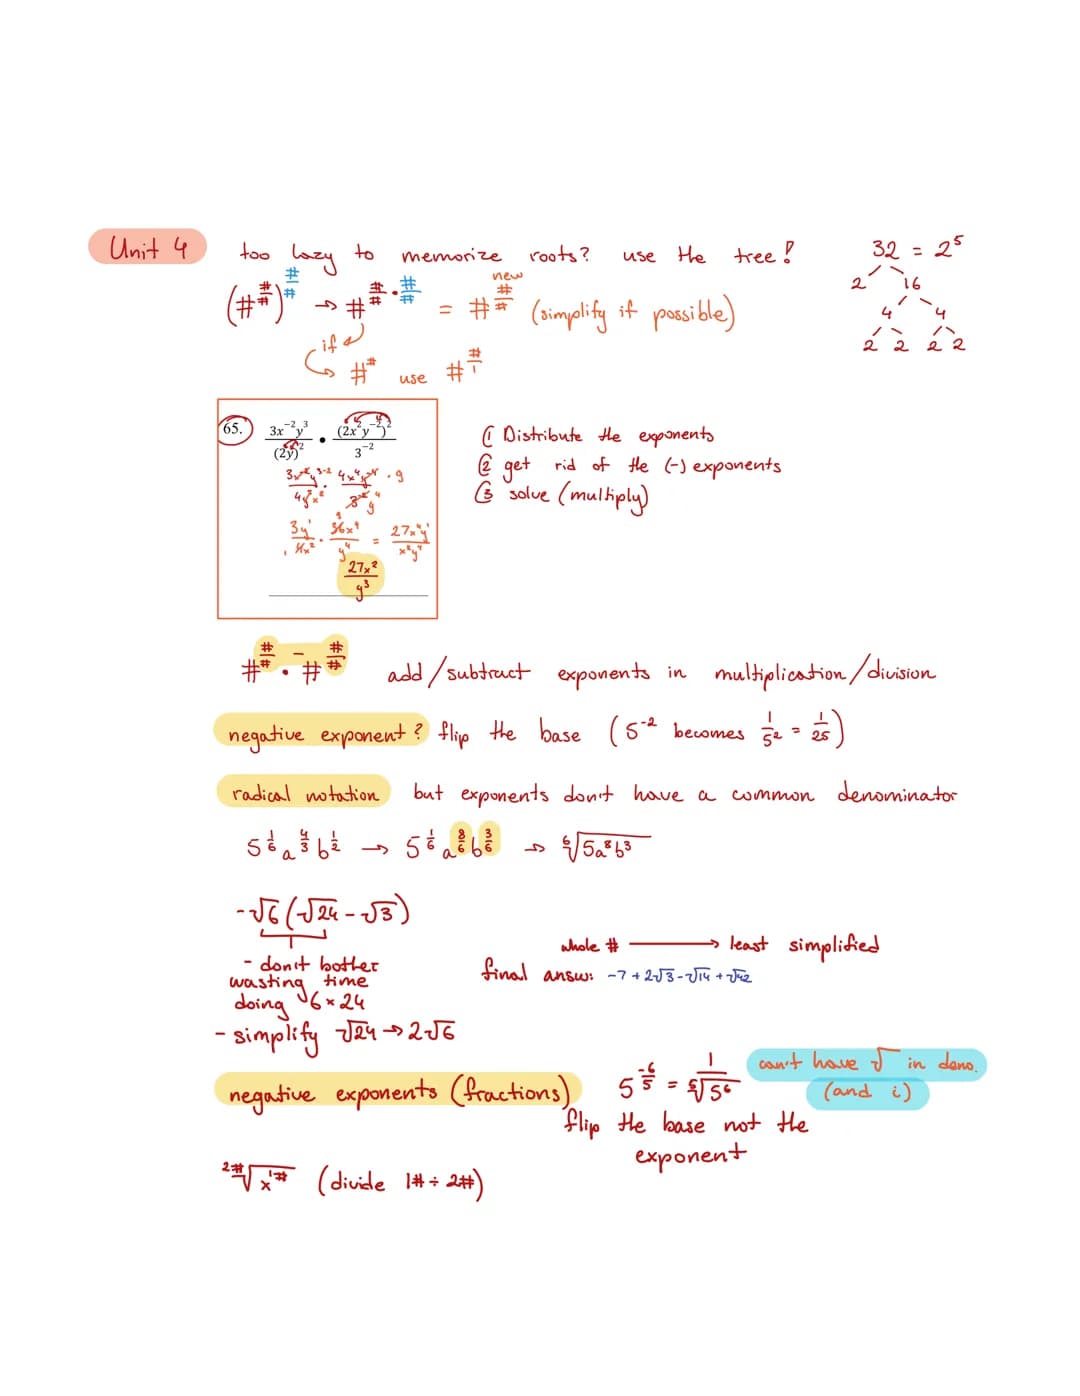 Unit 4
too lazy to memorize roots? use the tree!
32 = 2⁵
2 16
4 4
2 2 2 2
(#^(#/#))^(#/#) → #^(#/#)·^(#/#) = #^(#/#) new (simplify if possible)
if
#^# use #^(#/1)
65. 3x⁻²y³/(2y)² • (2x²y⁻²)²/3⁻²
3y¹/4x² · 36x⁴/y⁴ = 27x⁴y¹/x²y⁴
27x²/y³
① Distribute the exponents
② get rid of the (-) exponents
③ solve (multiply)
#^(#/#) · #^(#/#) – add/subtract exponents in multiplication/division
negative exponent? flip the base (5⁻² becomes 1/5² = 1/25)
radical notation but exponents don't have a common denominator
5^(1/6) a^(4/3) b^(1/2) → 5^(1/6) a^(8/6) b^(3/6) → ⁶√(5a⁸b³)
-√6 (√24 - √3)
- don't bother
wasting time
doing √6 × 24
- simplify √24 → 2√6
whole # → least simplified
final answ: -7 + 2√3 - √14 + √42
negative exponents (fractions)
5^(-6/5) = 1/⁵√5⁶
can't have √ in deno.
(and i)
flip the base not the
exponent
²#√x¹# (divide 1# ÷ 2#)